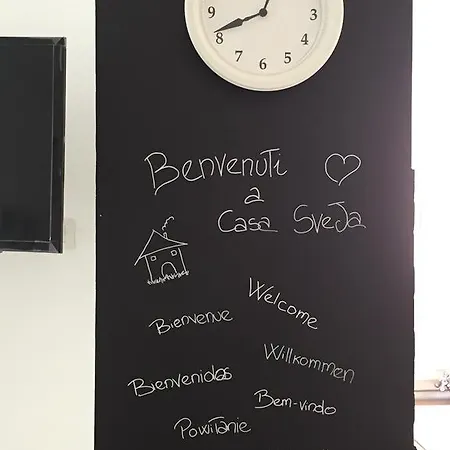 9
3
8
4
7
5
6
Benvenuti
a
Casa SveJa
Welcome
Bienvenue
Willkommen
Bienvenidas
Bem-vindo
Powitanie